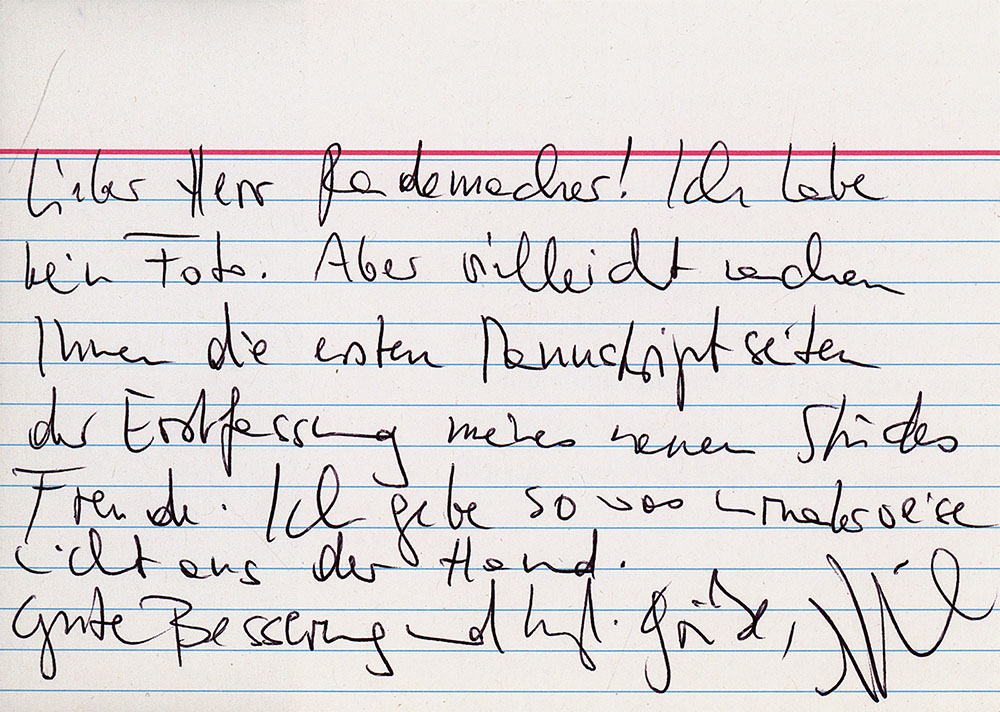 Lieber Herr Rademacher! Ich habe
kein Foto. Aber vielleicht machen
Ihnen die ersten Manuskriptseiten
der Erstfassung meines neuen Stückes
Freude. Ich gebe so was normalerweise
nicht aus der Hand.
Gute Besserung und hzl. Grüße,